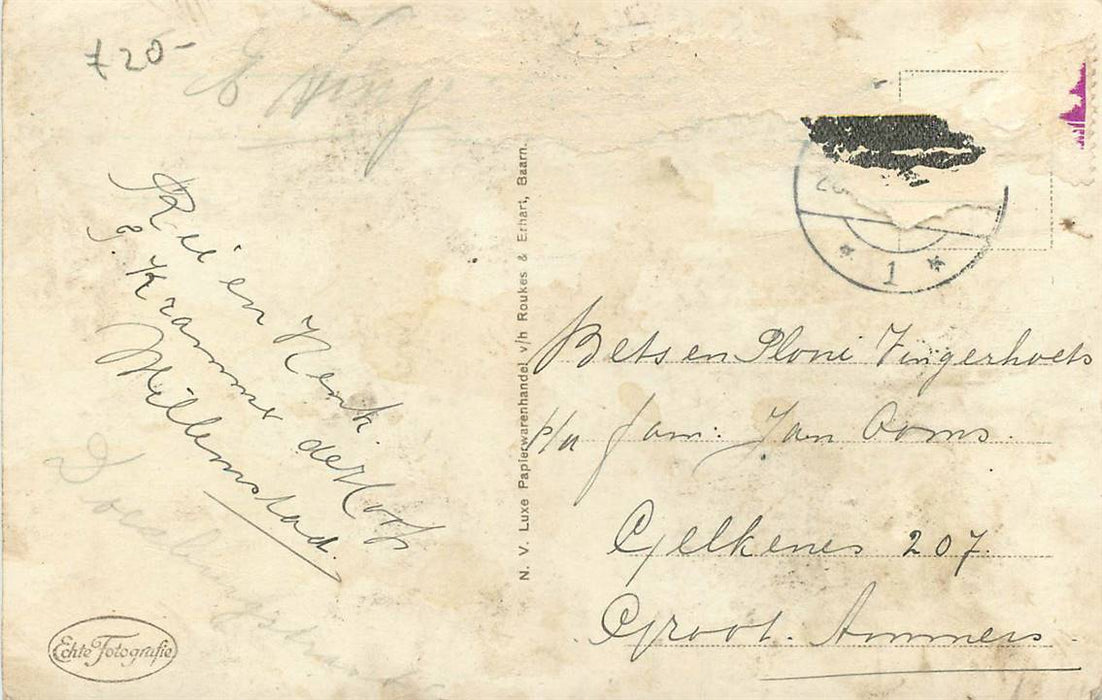 720-
Rie en Henk.
Kramer der Hoop
Willemstad.
N. V. Luxe Papierwarenhandel v/h Roukes & Erhart, Baarn.
* 1 *
Bets en Ploni Vingerhoets
p/a fam: Jan Ooms.
Gelkenes 207.
Groot-Ammers
Echte Fotografie